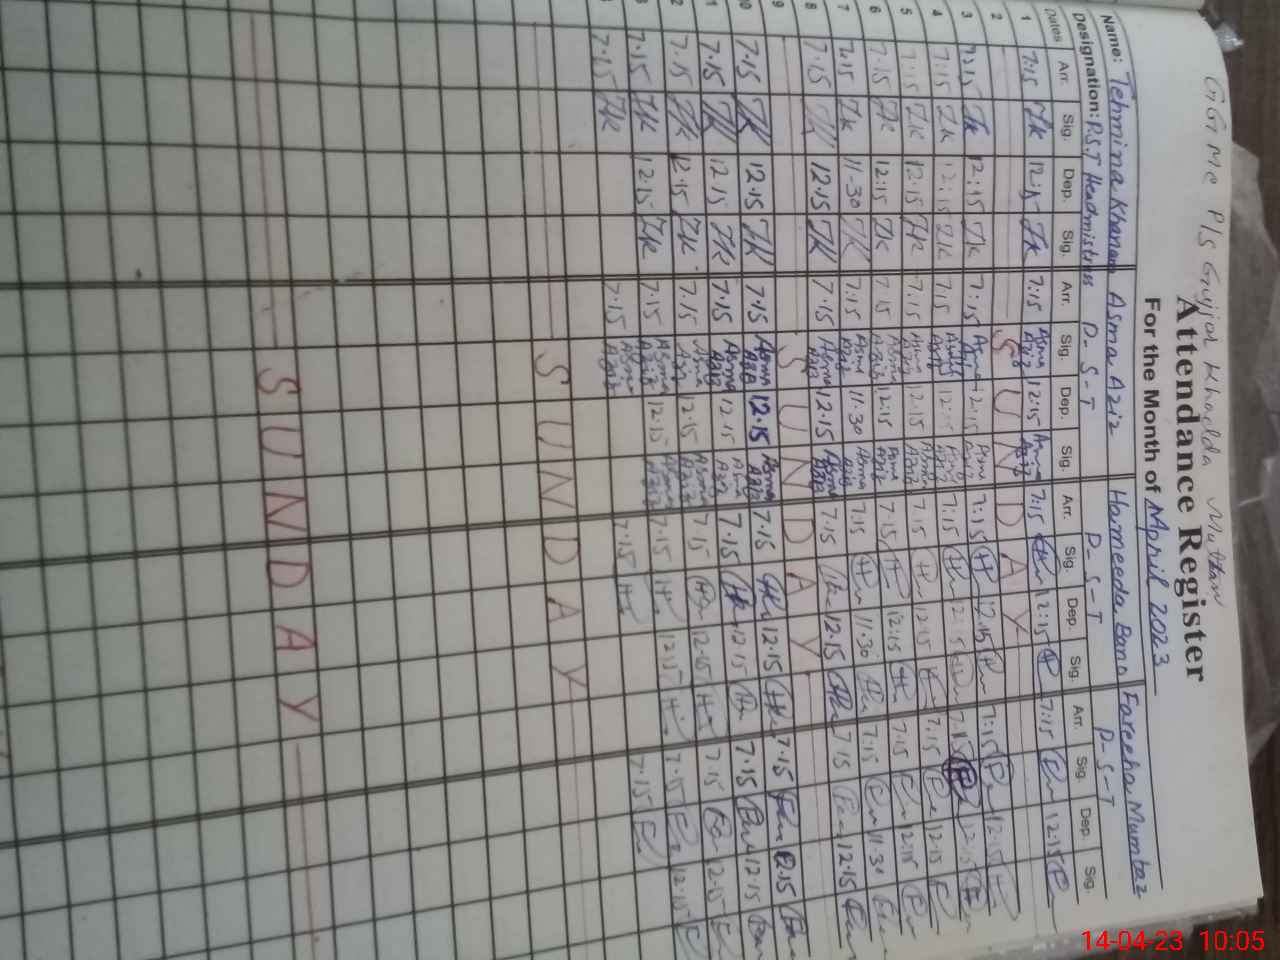 GGMC P/S Gujjar Khadda Multan
Attendance Register
For the Month of April 2023
Name: Tehmina Khanam Asma Aziz Hameeda Bano Fareeha Mumtaz
Designation: P.S.T Headmistress P-S-T P-S-T P-S-T
Dates Arr. Sig. Dep. Sig. Arr. Sig. Dep. Sig. Arr. Sig. Dep. Sig. Arr. Sig. Dep. Sig.
1 7:15 Zk 12:15 Zk 7:15 Asma Aziz 12:15 Asma Aziz 7:15 12:15 7:15 12:15
2 SUNDAY
3 7:15 Zk 12:15 Zk 7:15 Asma Aziz 12:15 Asma Aziz 7:15 12:15 7:15 12:15
4 7:15 Zk 12:15 Zk 7:15 Asma Aziz 12:15 Asma Aziz 7:15 12:15 7:15 12:15
5 7:15 Zk 12:15 Zk 7.15 Asma Aziz 12.15 Asma Aziz 7.15 12.15 7.15 12.15
6 7.15 Zk 12:15 Zk 7.15 Asma Aziz 12:15 Asma Aziz 7.15 12:15 7.15 12:15
7 7:15 Zk 11-30 Zk 7.15 Asma Aziz 11.30 Asma Aziz 7:15 11:30 7.15 11.30
8 7.15 Zk 12.15 Zk 7.15 Asma Aziz 12.15 Asma Aziz 7.15 12.15 7.15 12.15
9 SUNDAY
10 7.15 Zk 12.15 Zk 7.15 Asma Aziz 12.15 Asma Aziz 7.15 12.15 7.15 12.15
11 7.15 Zk 12.15 Zk 7.15 Asma Aziz 12.15 Asma Aziz 7.15 12.15 7.15 12.15
12 7.15 Zk 12.15 Zk 7.15 Asma Aziz 12.15 Asma Aziz 7.15 12.15 7.15 12.15
13 7.15 Zk 12.15 Zk 7.15 Asma Aziz 12.15 Asma Aziz 7.15 12.15 7.15 12.15
7.15 Zk 7.15 Asma Aziz 7.15 7.15
SUNDAY
SUNDAY
14-04-23 10:05